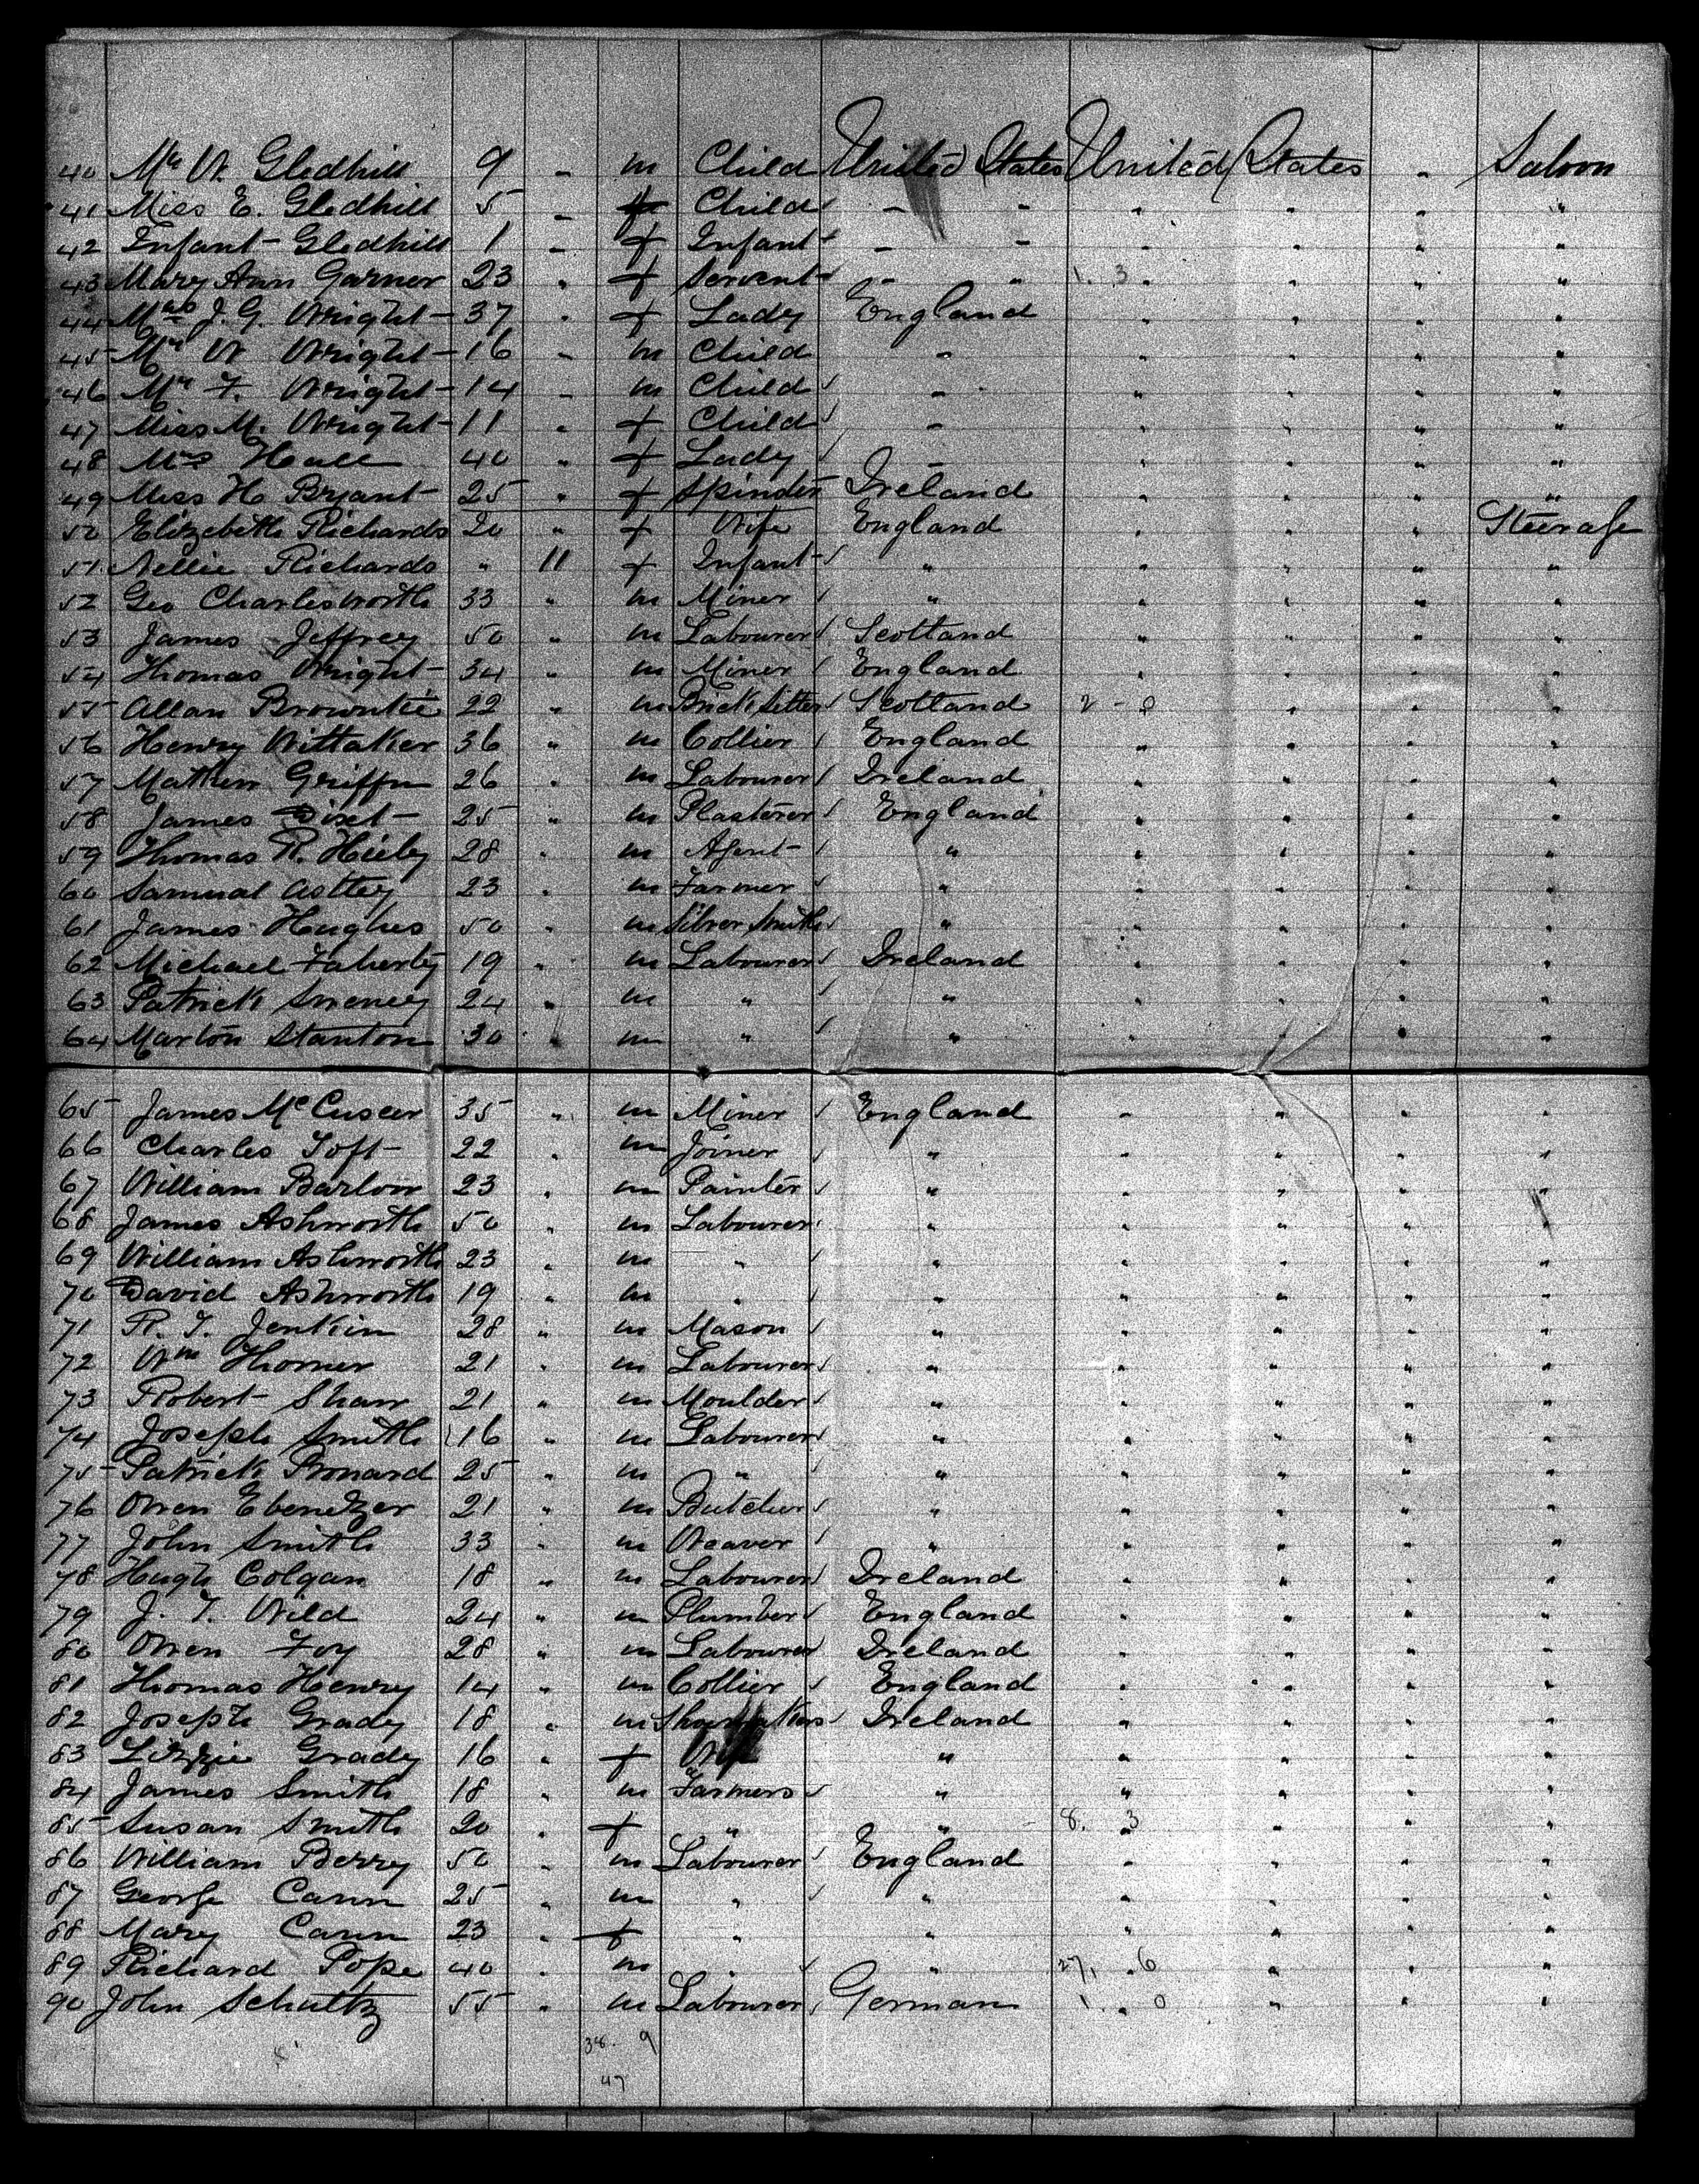 40 Mr W. Gledhill 9 - m Child United States United States - Saloon
41 Miss E. Gledhill 5 - f Child - - " " " "
42 Infant Gledhill 1 - f Infant - - " " " "
43 Mary Ann Garner 23 " f Servent - " 1. 3 " " " "
44 Mrs J. G. Wright 37 " f Lady England " " " "
45 Mr W Wright 16 - m Child " " " " "
46 Mr F. Wright 14 - m Child " " " " "
47 Miss M. Wright 11 " f Child " " " " "
48 Mrs Hall 40 " f Lady " " " " "
49 Miss H Bryant 25 " f Spinster Ireland " " " "
50 Elizebeth Richards 20 " f Wife England " " " Steerage
51 Nellie Richards " 11 f Infant " " " " "
52 Geo Charlesworth 33 " m Miner " " " " "
53 James Jeffrey 50 " m Labourer Scotland " " " "
54 Thomas Wright 34 " m Miner England " " " "
55 Allan Brownlie 22 " m Brick Setter Scotland 2 - 0 " " "
56 Henry Wittaker 36 " m Collier England " " " "
57 Mathew Griffin 26 " m Labourer Ireland " " " "
58 James 25 " m Plasterer England " " " "
59 Thomas R. 28 " m Agent " " " " "
60 Samuel Astley 23 " m Farmer " " " " "
61 James Hughes 50 " m Silver Smith " " " " "
62 Michael Faherty 19 " m Labourer Ireland " " " "
63 Patrick Sweney 24 " m " " " " " "
64 Marton Stanton 30 " m " " " " " "
65 James McCuscer 35 " m Miner England " " " "
66 Charles Toft 22 " m Joiner " " " " "
67 William Barlow 23 " m Painter " " " " "
68 James Ashworth 50 " m Labourer " " " " "
69 William Ashworth 23 " m " " " " " "
70 David Ashworth 19 " m " " " " " "
71 R. T. Jenkin 28 " m Mason " " " " "
72 Wm Horner 21 " m Labourer " " " " "
73 Robert Shaw 21 " m Moulder " " " " "
74 Joseph Smith 16 " m Labourer " " " " "
75 Patrick 25 " m " " " " " "
76 Owen Ebenetzer 21 " m Butcher " " " " "
77 John Smith 33 " m Weaver " " " " "
78 Hugh Colgan 18 " m Labourer Ireland " " " "
79 J. T. Wild 24 " m Plumber England " " " "
80 Owen Foy 28 " m Labourer Ireland " " " "
81 Thomas Henry 14 " m Collier England " " " "
82 Joseph Grady 18 " m Shoemakers Ireland " " " "
83 Lizzie Grady 16 " f " " " " "
84 James Smith 18 " m Farmers " " " " "
85 Susan Smith 20 " f " " 8. 3 " " "
86 William Berry 50 " m Labourer England " " " "
87 George Cann 25 " m " " " " " "
88 Mary Cann 23 " f " " " " " "
89 Richard Pope 40 " m " " 27. 6 " " "
90 John Schultz 55 " m Labourer German 1. 0 " " "
38. 9
47